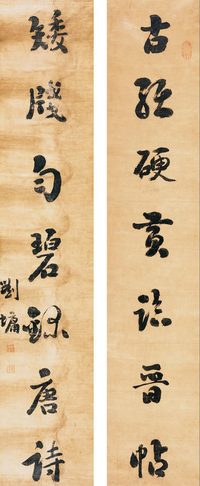 古紙硬黃臨晉帖
矮牋勻碧錄唐詩
劉墉